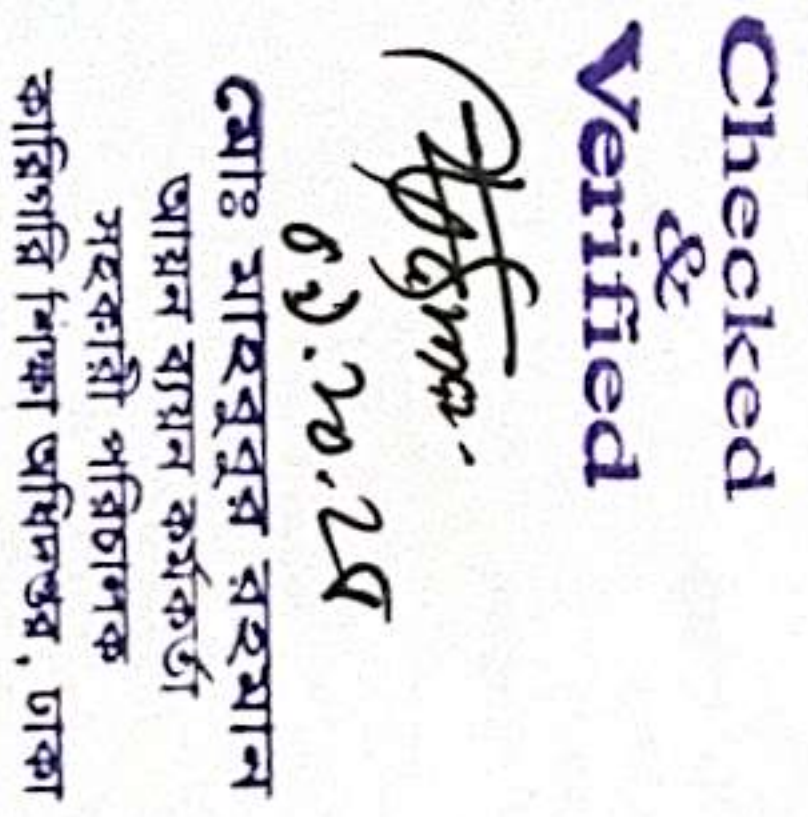 Checked
&
Verified
মোঃ মাহবুবুর রহমান
আয়ন ব্যয়ন কর্মকর্তা
সহকারী পরিচালক
কারিগরি শিক্ষা অধিদপ্তর, ঢাকা